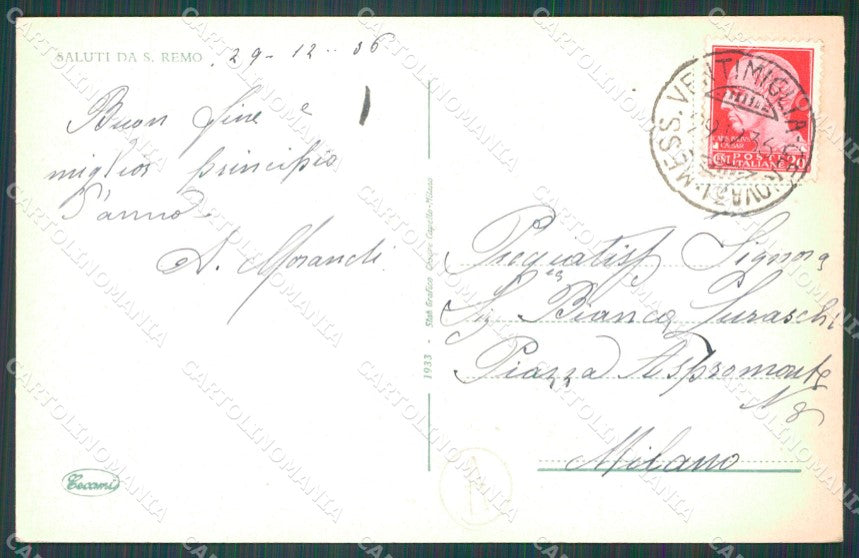 SALUTI DA S. REMO
29-12-36
Buon fine e
miglior principio
d'anno.
A. Morandi
1933 - Stab. Grafico Cesare Capello - Milano
Cecami
MESS. VENTIMIGLIA-GENOVA
POSTE ITALIANE
Signora
Sig Bianca Suraschi
Piazza Aspromonte
N 8
Milano
CARTOLINOMANIA